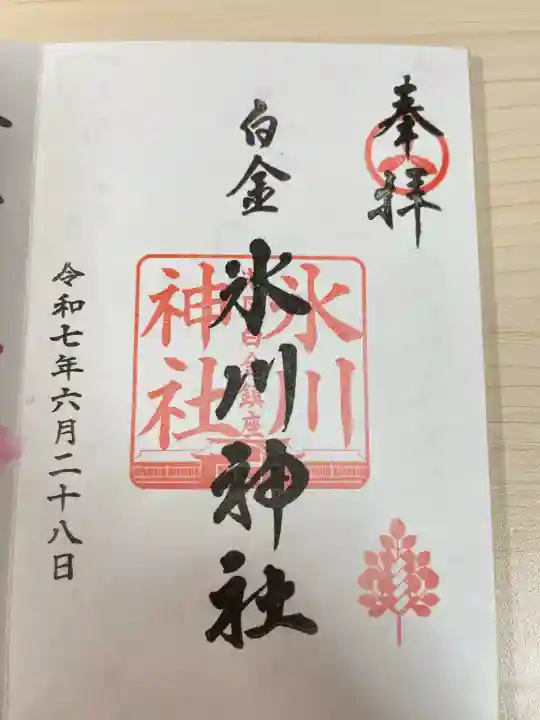 奉拝
白金
氷川神社
氷川
白金鎮座
神社
令和七年六月二十八日